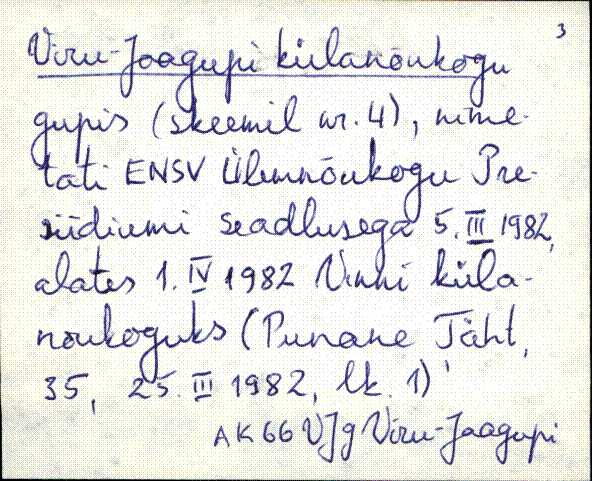 3
Viru-Jaagupi külanõukogu
gupis (skeemil nr. 4), nime-
tati ENSV Ülemnõukogu Pre-
siidiumi seadlusega 5. III 1982,
alates 1. IV 1982 Vinni küla-
nõukoguks (Punane Täht,
35, 25. III 1982, lk. 1)
AK 66 VJg Viru-Jaagupi